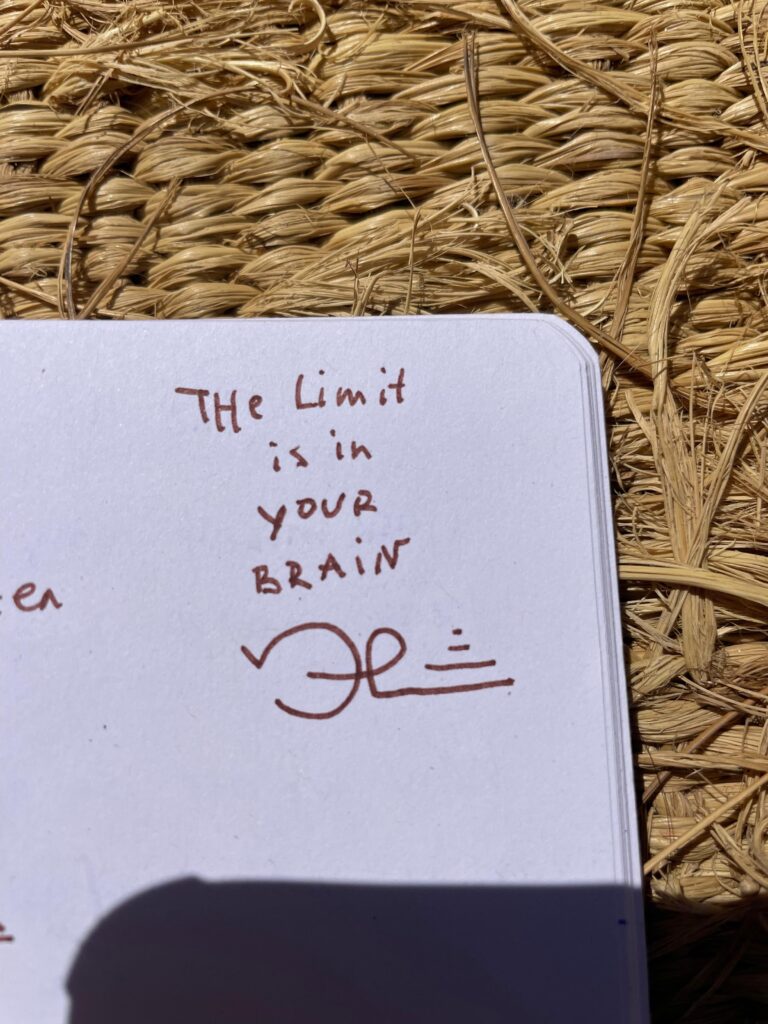 THe Limit
is in
YOUR
BRAiN